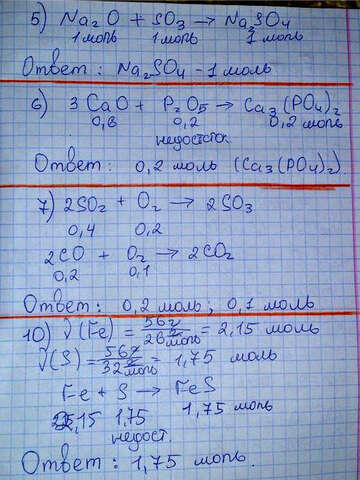 5) Na₂O + SO₃ → Na₂SO₄
1 моль 1 моль 1 моль
Ответ: Na₂SO₄ - 1 моль
6) 3CaO + P₂O₅ → Ca₃(PO₄)₂
0,8 0,2 0,2 моль
недостаток
Ответ: 0,2 моль (Ca₃(PO₄)₂).
7) 2SO₂ + O₂ → 2SO₃
0,4 0,2
2CO + O₂ → 2CO₂
0,2 0,1
Ответ: 0,2 моль; 0,1 моль
10) ν(Fe) = 56г / 26 г/моль = 2,15 моль
ν(S) = 56г / 32 г/моль = 1,75 моль
Fe + S → FeS
2,15 1,75 1,75 моль
недост.
Ответ: 1,75 моль.